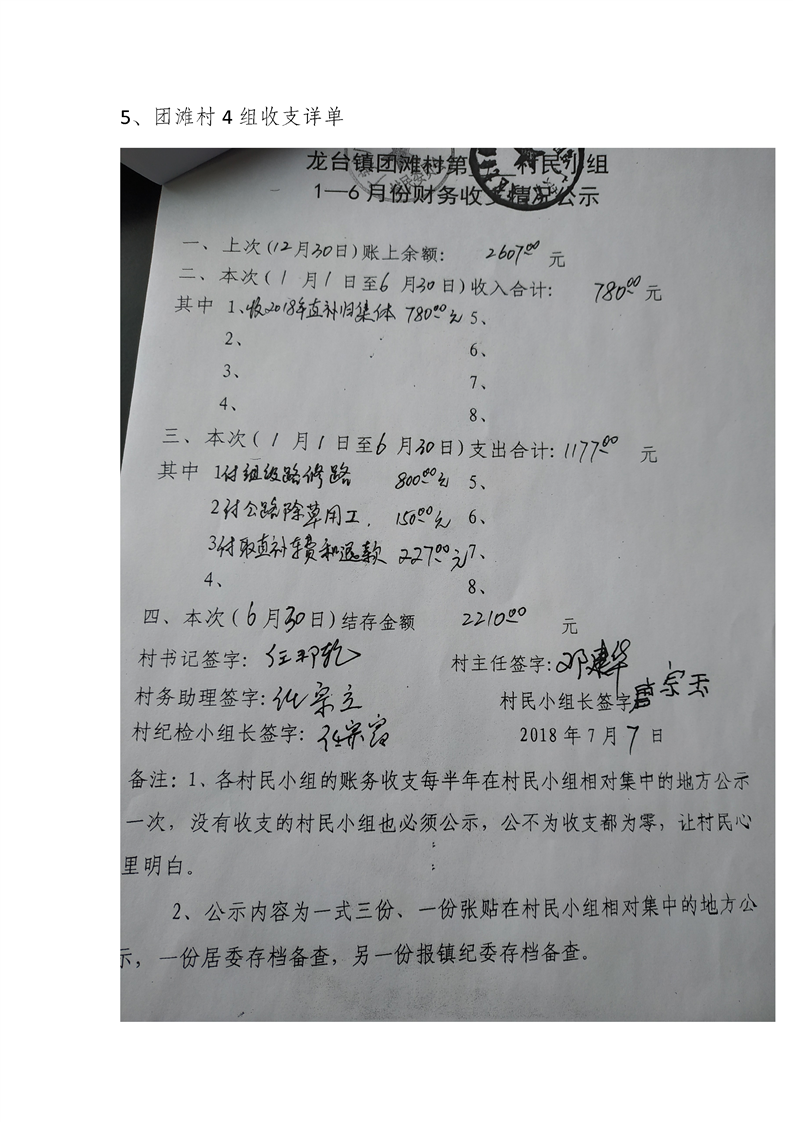 5、团滩村 4 组收支详单
龙台镇团滩村第 村民小组
1—6 月份财务收支情况公示
一、上次(12月30日)账上余额: 2607.00 元
二、本次( 1 月 1 日至6 月30日)收入合计: 780.00 元
其中 1、收2018年直补归集体 780.00元 5、
2、 6、
3、 7、
4、 8、
三、本次( 1 月 1 日至6 月30日)支出合计: 1177.00 元
其中 1付组级路修路 800.00元 5、
2付公路除草用工. 150.00元 6、
3付取直补车费和退款 227.00元 7、
4、 8、
四、本次(6月30日)结存金额 2210.00 元
村书记签字: 村主任签字:邓建华
村务助理签字:任宗立 村民小组长签字 宗玉
村纪检小组长签字: 2018 年 7 月 7 日
备注:1、各村民小组的账务收支每半年在村民小组相对集中的地方公示
一次,没有收支的村民小组也必须公示,公不为收支都为零,让村民心
里明白。
2、公示内容为一式三份、一份张贴在村民小组相对集中的地方公
示,一份居委存档备查,另一份报镇纪委存档备查。